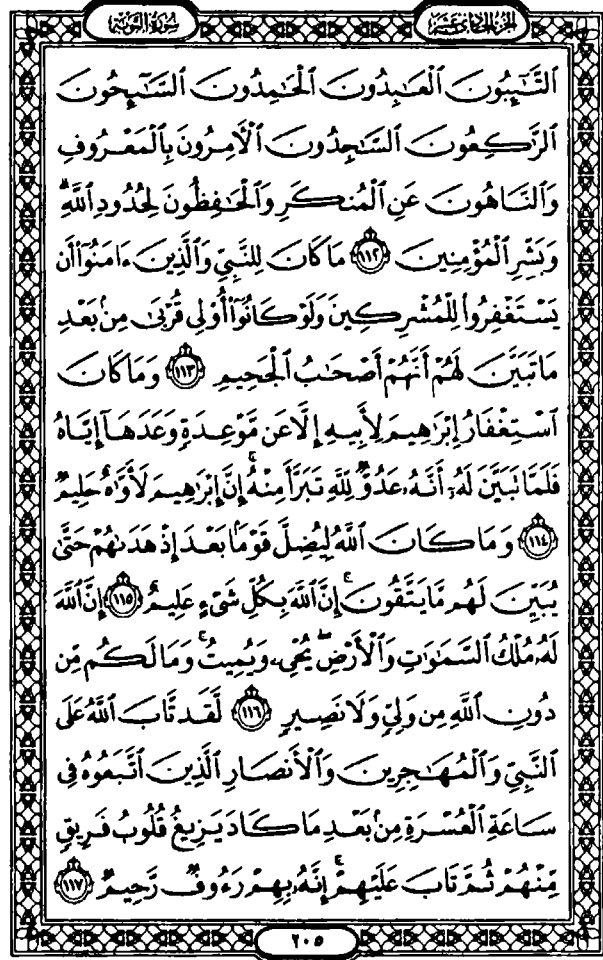 الجزء الحادي عشر
سورة التوبة
ٱلتَّٰٓئِبُونَ ٱلْعَٰبِدُونَ ٱلْحَٰمِدُونَ ٱلسَّٰٓئِحُونَ
ٱلرَّٰكِعُونَ ٱلسَّٰجِدُونَ ٱلْءَامِرُونَ بِٱلْمَعْرُوفِ
وَٱلنَّاهُونَ عَنِ ٱلْمُنكَرِ وَٱلْحَٰفِظُونَ لِحُدُودِ ٱللَّهِۗ
وَبَشِّرِ ٱلْمُؤْمِنِينَ ١١٢ مَا كَانَ لِلنَّبِيِّ وَٱلَّذِينَ ءَامَنُوٓا۟ أَن
يَسْتَغْفِرُوا۟ لِلْمُشْرِكِينَ وَلَوْ كَانُوٓا۟ أُو۟لِى قُرْبَىٰ مِنۢ بَعْدِ
مَا تَبَيَّنَ لَهُمْ أَنَّهُمْ أَصْحَٰبُ ٱلْجَحِيمِ ١١٣ وَمَا كَانَ
ٱسْتِغْفَارُ إِبْرَٰهِيمَ لِأَبِيهِ إِلَّا عَن مَّوْعِدَةٍ وَعَدَهَآ إِيَّاهُ
فَلَمَّا تَبَيَّنَ لَهُۥٓ أَنَّهُۥ عَدُوٌّ لِّلَّهِ تَبَرَّأَ مِنْهُۚ إِنَّ إِبْرَٰهِيمَ لَأَوَّٰهٌ حَلِيمٌ
١١٤ وَمَا كَانَ ٱللَّهُ لِيُضِلَّ قَوْمًۢا بَعْدَ إِذْ هَدَىٰهُمْ حَتَّىٰ
يُبَيِّنَ لَهُم مَّا يَتَّقُونَۚ إِنَّ ٱللَّهَ بِكُلِّ شَىْءٍ عَلِيمٌ ١١٥ إِنَّ ٱللَّهَ
لَهُۥ مُلْكُ ٱلسَّمَٰوَٰتِ وَٱلْأَرْضِۖ يُحْىِۦ وَيُمِيتُۚ وَمَا لَكُم مِّن
دُونِ ٱللَّهِ مِن وَلِىٍّ وَلَا نَصِيرٍ ١١٦ لَّقَد تَّابَ ٱللَّهُ عَلَى
ٱلنَّبِىِّ وَٱلْمُهَٰجِرِينَ وَٱلْأَنصَارِ ٱلَّذِينَ ٱتَّبَعُوهُ فِى
سَاعَةِ ٱلْعُسْرَةِ مِنۢ بَعْدِ مَا كَادَ يَزِيغُ قُلُوبُ فَرِيقٍ
مِّنْهُمْ ثُمَّ تَابَ عَلَيْهِمْۚ إِنَّهُۥ بِهِمْ رَءُوفٌ رَّحِيمٌ ١١٧
٢٠٥